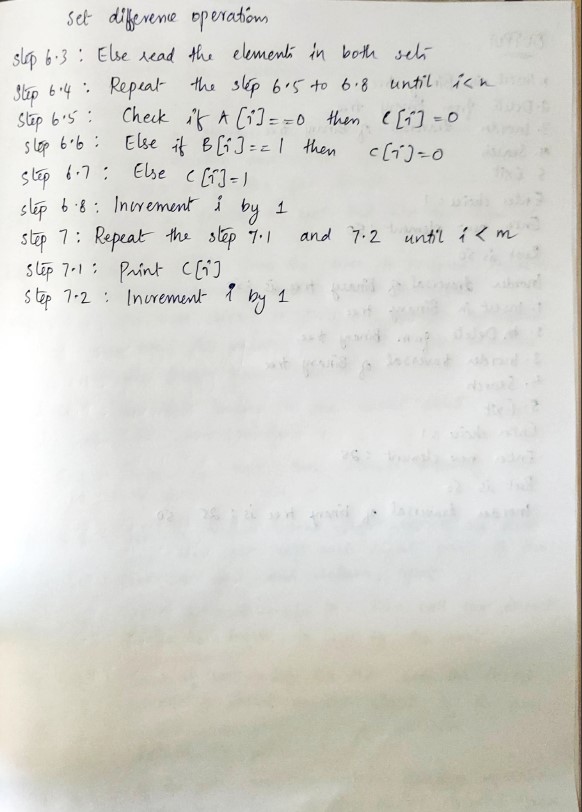 set difference operations
step 6.3 : Else read the elements in both sets
step 6.4 : Repeat the step 6.5 to 6.8 until i<n
step 6.5 : Check if A[i]==0 then C[i]=0
step 6.6 : Else if B[i]==1 then C[i]=0
step 6.7 : Else C[i]=1
step 6.8 : Increment i by 1
step 7 : Repeat the step 7.1 and 7.2 until i<m
step 7.1 : Print C[i]
step 7.2 : Increment i by 1